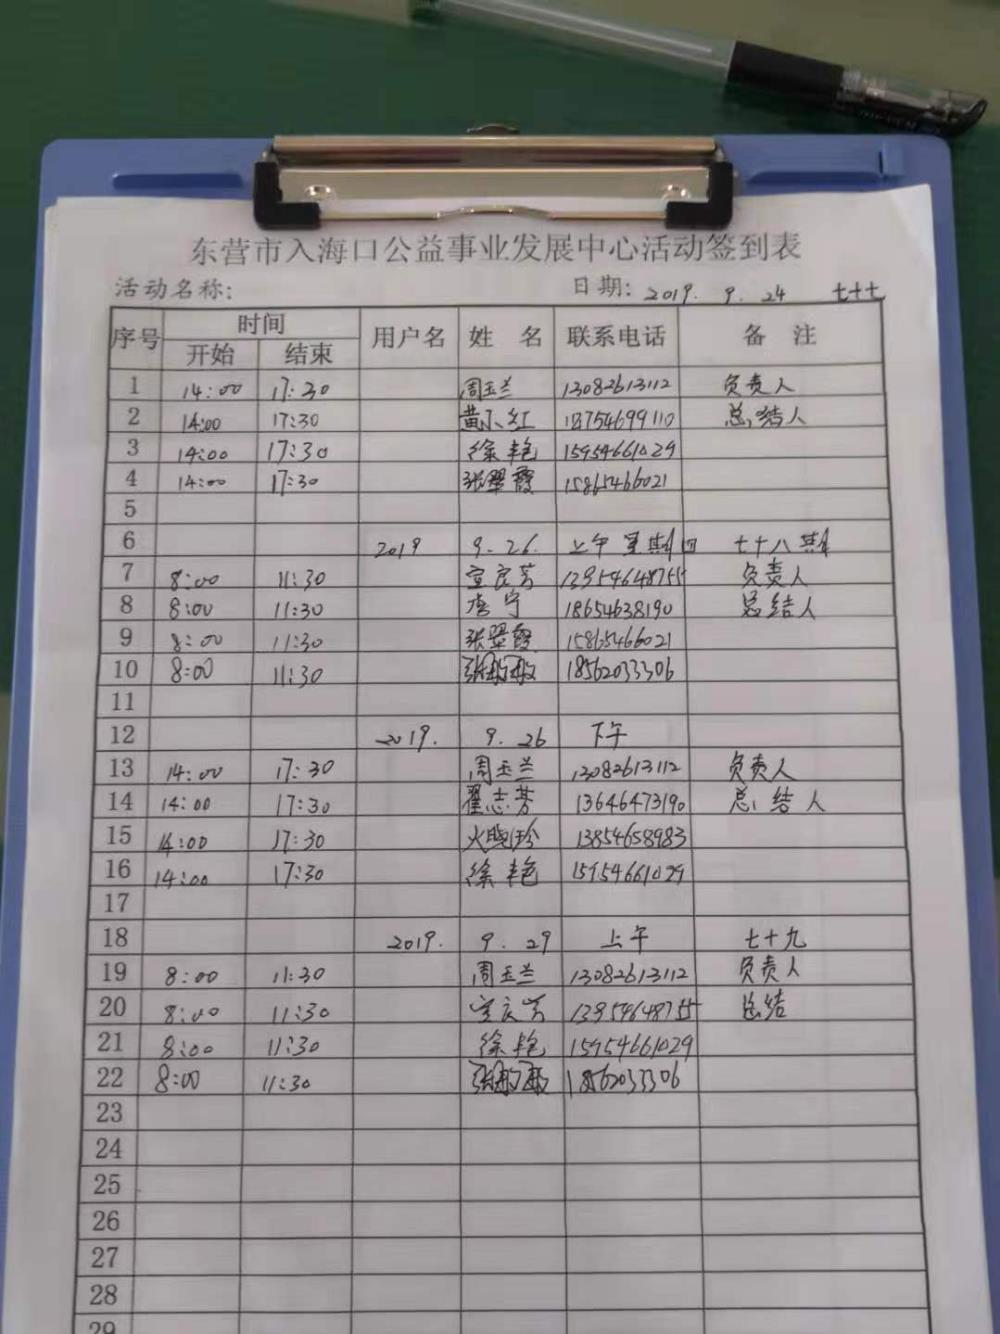 东营市入海口公益事业发展中心活动签到表
活动名称: 日期: 2019. 9. 24 七十七
序号 时间 用户名 姓 名 联系电话 备 注
开始 结束
1 14:00 17:30 周玉兰 13082613112 负责人
2 14:00 17:30 黄小红 18754699110 总结人
3 14:00 17:30 徐艳 15954661029
4 14:00 17:30 张翠霞 15865466021
5
6 2019 9.26. 上午 星期四 七十八期
7 8:00 11:30 宣良芳 13954648755 负责人
8 8:00 11:30 李宁 18654638190 总结人
9 8:00 11:30 张翠霞 15865466021
10 8:00 11:30 张 18562033306
11
12 2019. 9.26 下午
13 14:00 17:30 周玉兰 13082613112 负责人
14 14:00 17:30 翟志芳 13646473190 总结人
15 14:00 17:30 火晓珍 13854658983
16 14:00 17:30 徐艳 15954661029
17
18 2019. 9.29 上午 七十九
19 8:00 11:30 周玉兰 13082613112 负责人
20 8:00 11:30 宣良芳 13954648755 总结
21 8:00 11:30 徐艳 15954661029
22 8:00 11:30 张 18562033306
23
24
25
26
27
28
29